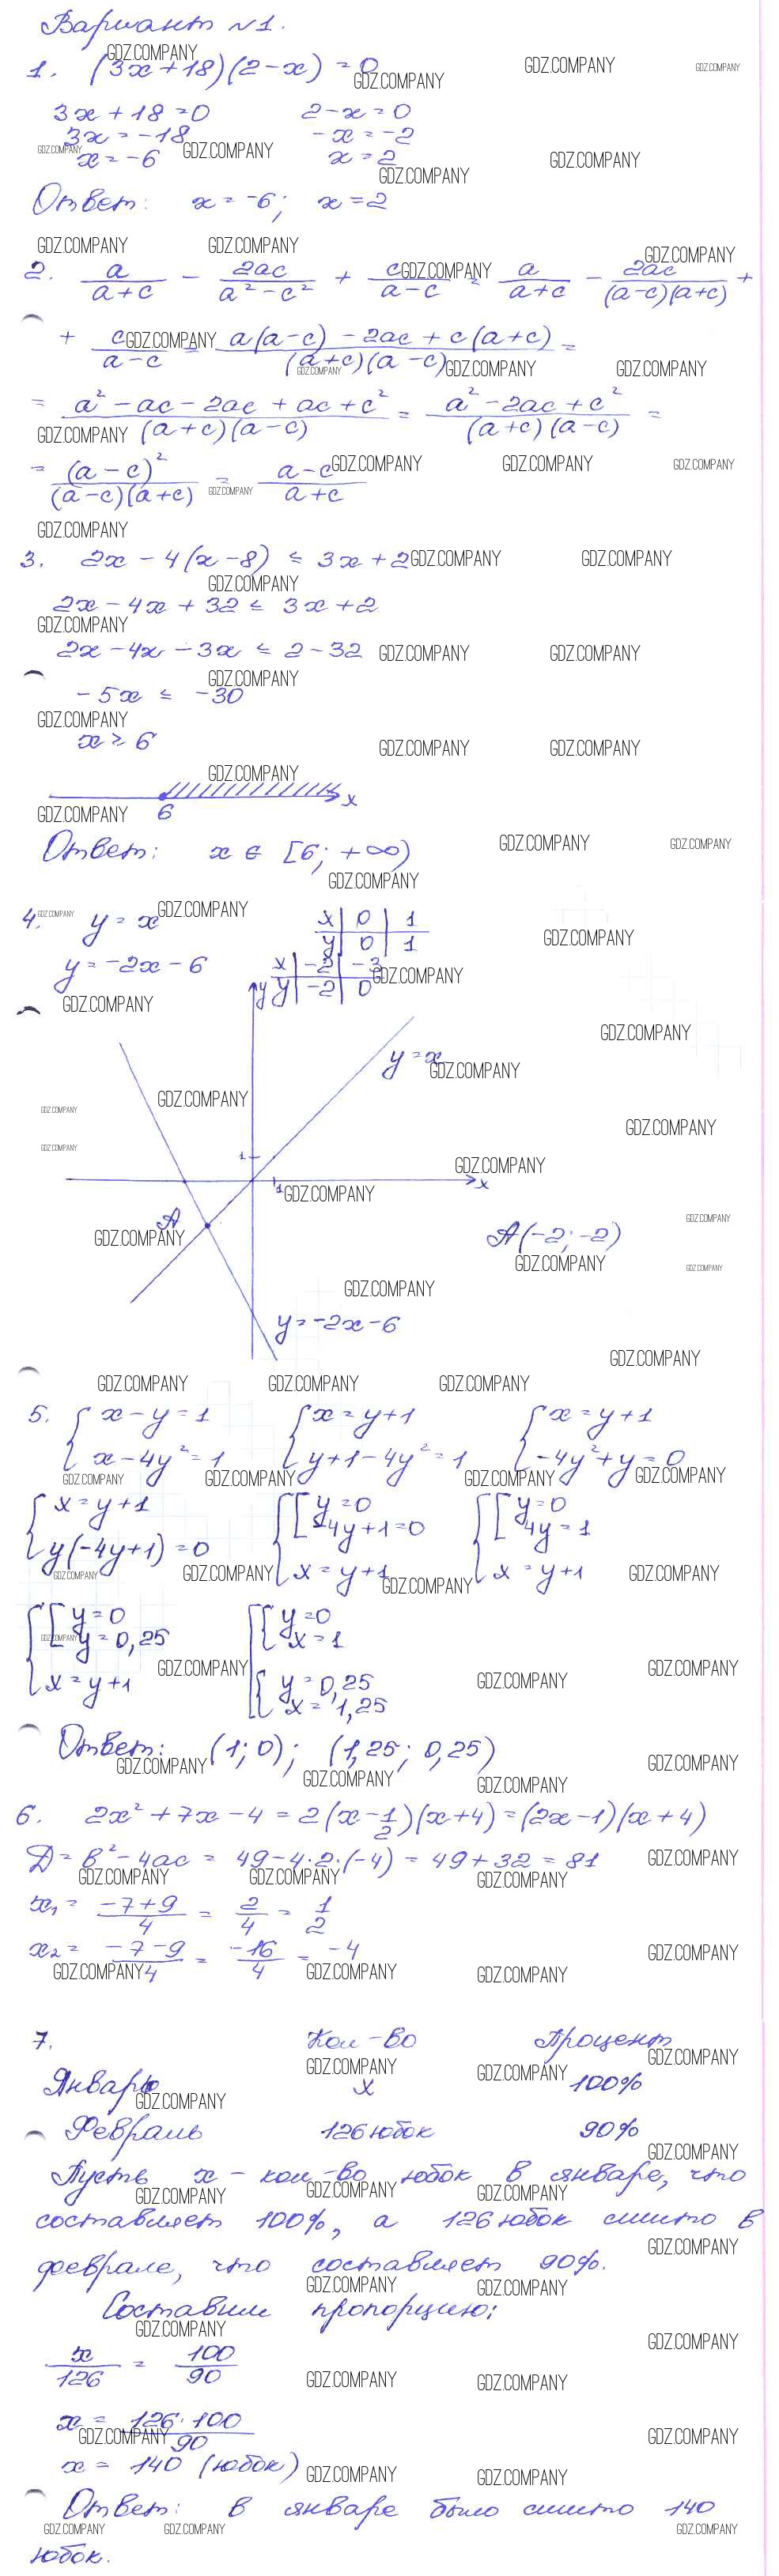 Вариант №1.
1. (3x+18)(2-x) = 0
3x+18=0 2-x=0
3x=-18 -x=-2
x=-6 x=2
Ответ: x=-6; x=2
2. a/(a+c) - 2ac/(a²-c²) + c/(a-c) = a/(a+c) - 2ac/((a-c)(a+c)) +
+ c/(a-c) = (a(a-c) - 2ac + c(a+c))/((a+c)(a-c)) =
= (a² - ac - 2ac + ac + c²)/((a+c)(a-c)) = (a² - 2ac + c²)/((a+c)(a-c)) =
= (a-c)²/((a-c)(a+c)) = (a-c)/(a+c)
3. 2x - 4(x-8) ≤ 3x+2
2x - 4x + 32 ≤ 3x+2
2x - 4x - 3x ≤ 2-32
-5x ≤ -30
x ≥ 6
6 x
Ответ: x ∈ [6; +∞)
4. y = x x | 0 | 1
y | 0 | 1
y = -2x - 6 x | -2 | -3
y | -2 | 0
y
y=x
1
1 x
A
A(-2; -2)
y=-2x-6
5. { x-y=1 { x=y+1 { x=y+1
x-4y²=1 y+1-4y²=1 -4y²+y=0
{ x=y+1 { [ y=0 { [ y=0
y(-4y+1)=0 -4y+1=0 4y=1
x=y+1 x=y+1
{ [ y=0 [ { y=0
y=0,25 x=1
x=y+1 { y=0,25
x=1,25
Ответ: (1; 0); (1,25; 0,25)
6. 2x²+7x-4 = 2(x-1/2)(x+4) = (2x-1)(x+4)
D = b²-4ac = 49-4·2·(-4) = 49+32 = 81
x₁ = (-7+9)/4 = 2/4 = 1/2
x₂ = (-7-9)/4 = -16/4 = -4
7. Кол-во Процент
Январь x 100%
Февраль 126 юбок 90%
Пусть x - кол-во юбок в январе, что
составляет 100%, а 126 юбок сшито в
феврале, что составляет 90%.
Составим пропорцию:
x/126 = 100/90
x = 126·100/90
x = 140 (юбок)
Ответ: в январе было сшито 140
юбок.
GDZ.COMPANY